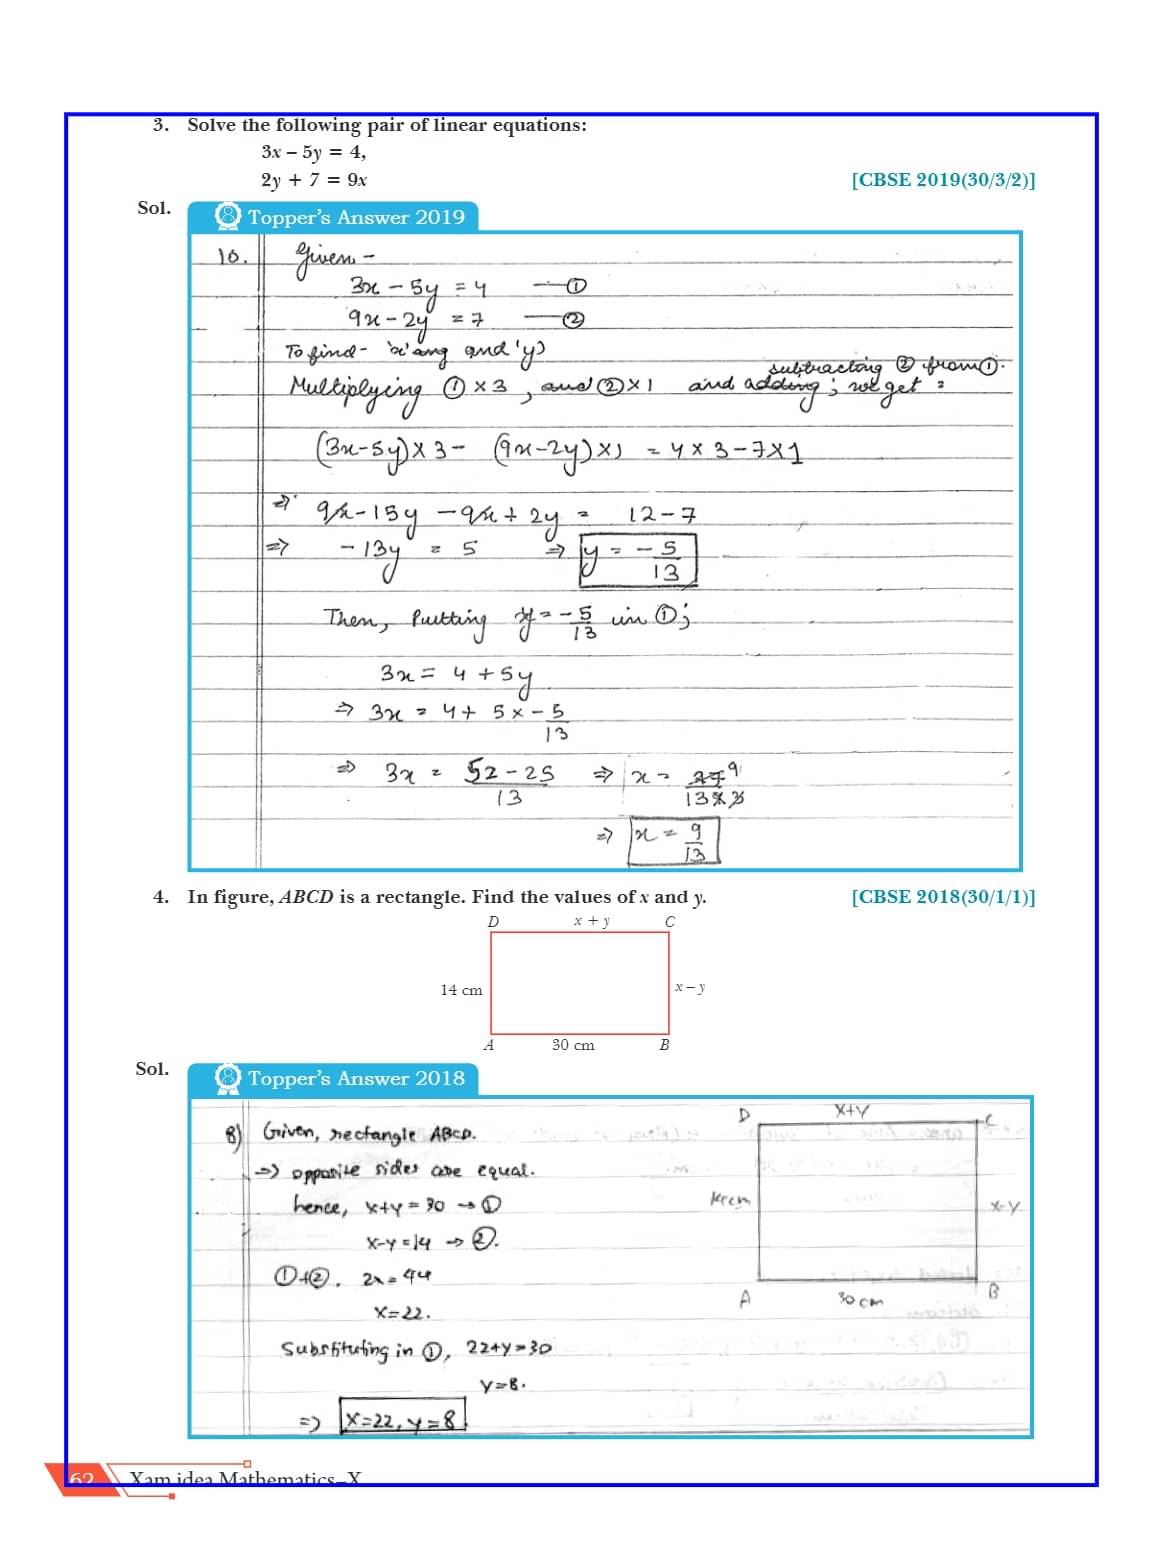 3. Solve the following pair of linear equations:
3x – 5y = 4,
2y + 7 = 9x [CBSE 2019(30/3/2)]
Sol. Topper's Answer 2019
10. Given –
3x – 5y = 4 —①
9x – 2y = 7 —②
To find – 'x' and 'y'
subtracting ② from ①.
Multiplying ① × 3, and ② × 1 and adding; we get =
(3x-5y)×3 – (9x-2y)×1 = 4×3-7×1
⇒ 9x-15y -9x+2y = 12-7
⇒ -13y = 5 ⇒ y = -5/13
Then, Putting y = -5/13 in ①;
3x = 4 + 5y
⇒ 3x = 4 + 5 × -5/13
⇒ 3x = 52-25/13 ⇒ x = 27 9/13×3
⇒ x = 9/13
4. In figure, ABCD is a rectangle. Find the values of x and y. [CBSE 2018(30/1/1)]
D x + y C
14 cm x – y
A 30 cm B
Sol. Topper's Answer 2018
8) Given, rectangle ABCD.
⇒ opposite sides are equal.
hence, x+y=30 → ①
x-y=14 → ②.
①+②. 2x=44
x=22.
Substituting in ①, 22+y=30
y=8.
⇒ x=22, y=8
D x+y C
14cm x-y
A 30cm B
62 Xam idea Mathematics–X